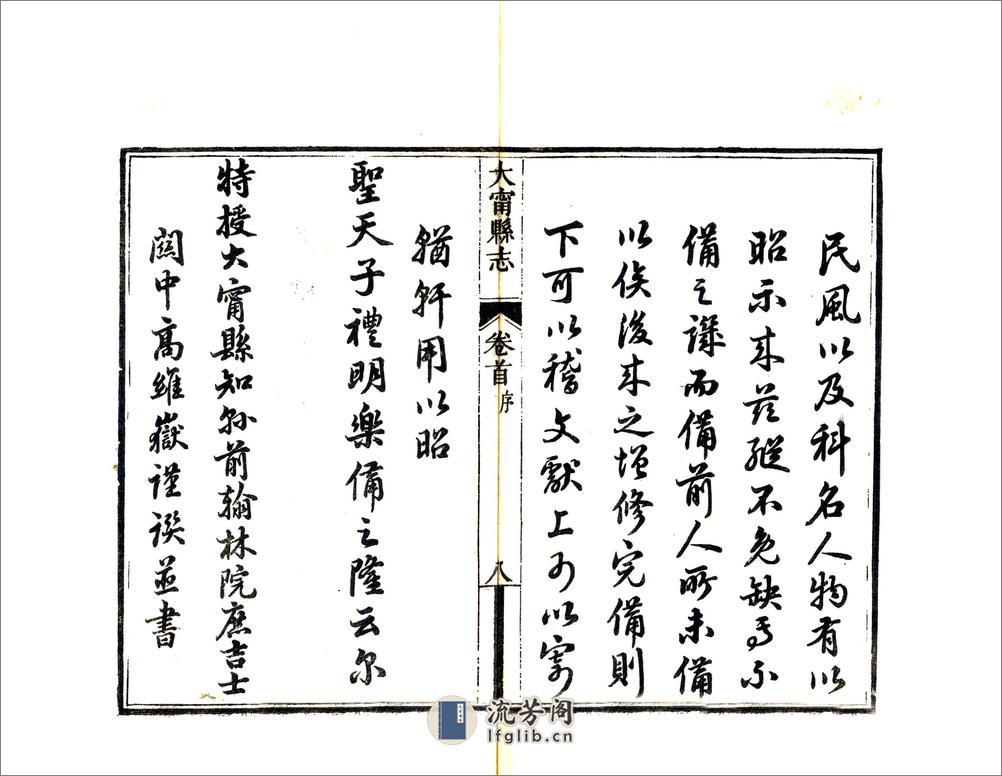 民風以及科名人物有以
昭示來茲縱不免缺焉不
備之譏而備前人所未備
以俟後來之增修完備則
下可以稽文獻上可以寄
輶軒用以昭
聖天子禮明樂備之隆云尔
特授大甯縣知縣前翰林院庶吉士
關中高維嶽謹譔並書
大甯縣志
卷首
序
八
流芳阁
lfglib.cn